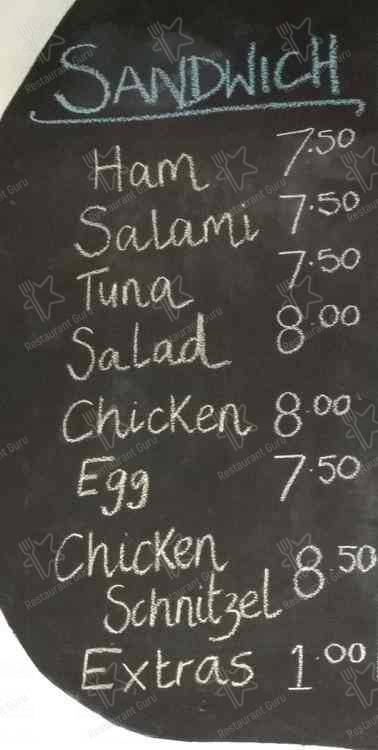 SANDWICH
Ham 7.50
Salami 7.50
Tuna 7.50
Salad 8.00
Chicken 8.00
Egg 7.50
Chicken
Schnitzel 8.50
Extras 1.00
Restaurant Guru